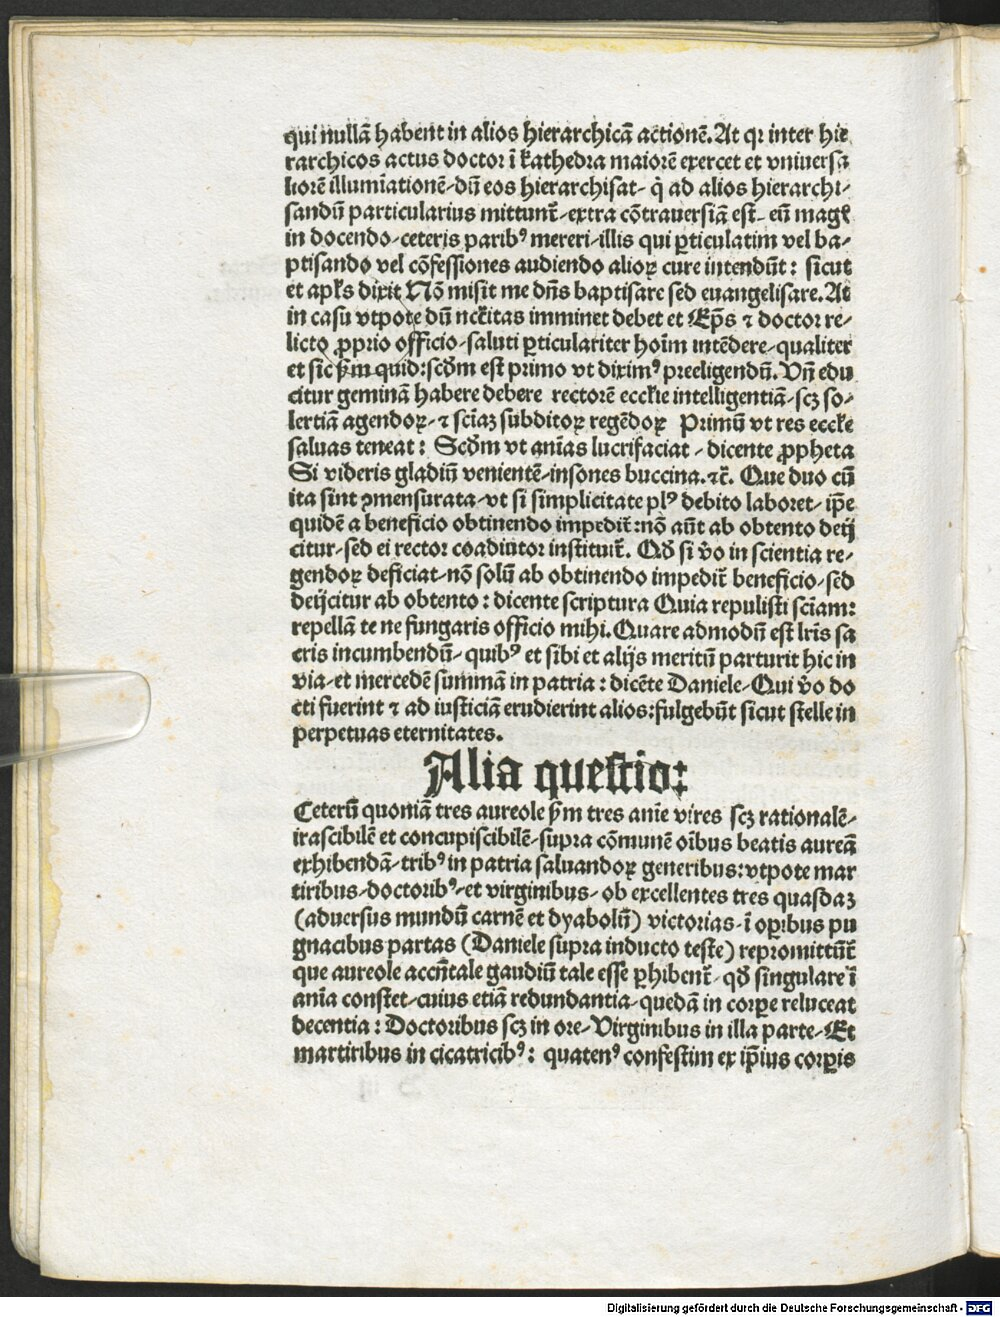 qui nullā habent in alios hierarchicā actionē. At qꝛ inter hie
rarchicos actus doctor ī kathedra maiorē exercet et vniuersa
liorē illumīationē-dū eos hierarchisat- q̇ ad alios hierarchi-
sandū particularius mittunt᷑-extra cōtrauersiā est- eū magꝭ
in docendo-ceteris paribꝰ mereri-illis qui ꝑticulatim vel ba-
ptisando vel cōfessiones audiendo alioꝝ cure intendūt: sicut
et apl's dixit Nō misit me dn̄s baptisare sed euangelisare. At
in casu vtpote dū nccītas imminet debet et Ep̄s ⁊ doctor re-
licto ꝓprio officio-saluti ꝑticulariter hoīm intēdere-qualiter
et sic ẜm quid: scd̄m est primo vt diximꝰ preeligendū. Vn̄ edu
citur geminā habere debere rectorē eccl'ie intelligentiā-scꝫ so-
lertiā agendoꝝ-⁊ scīaꝫ subditoꝝ regēdoꝝ Primū vt res eccl'e
saluas teneat: Scd̄m vt anīas lucrifaciat - dicente ꝓpheta
Si videris gladiū venientē-insones buccina. ⁊c̄. Que duo cū
ita sint ꝯmensurata-vt si simplicitate plꝰ debito laboret- ip̄e
quidē a beneficio obtinendo impedit᷑: nō aūt ab obtento deij
citur-sed ei rector coadiutor instituit᷑. Qd̄ si v̊o in scientia re-
gendoꝝ deficiat-nō solū ab obtinendo impedit᷑ beneficio-sed
deijcitur ab obtento: dicente scriptura Quia repulisti scīam:
repellā te ne fungaris officio mihi. Quare admodū est lr̄is sa
cris incumbendū- quibꝰ et sibi et alijs meritū parturit hic in
via-et mercedē summā in patria: dicēte Daniele-Qui v̊o do
cti fuerint ⁊ ad iusticiā erudierint alios: fulgebūt sicut stelle in
perpetuas eternitates.
Alia questio:
Ceterū quoniā tres aureole ẜm tres anīe vires scꝫ rationalē-
irascibilē et concupiscibilē-supra cōmunē oībus beatis aureā
exhibendā-tribꝰ in patria saluandoꝝ generibus: vtpote mar
tiribus-doctoribꝰ-et virginibus- ob excellentes tres quasdaꝫ
(aduersus mundū carnē et dyabolū) victorias-ī oꝑibus pu
gnacibus partas (Daniele supra inducto teste) repromittūt᷑
que aureole accn̄tale gaudiū tale esse ꝑhibent᷑- qd̄ singulare ī
anīa constet-cuius etiā redundantia-quedā in corꝑe reluceat
decentia: Doctoribus scꝫ in ore-Virginibus in illa parte-Et
martiribus in cicatricibꝰ: quatenꝰ confestim ex ip̄ius corꝑis
Digitalisierung gefördert durch die Deutsche Forschungsgemeinschaft - DFG